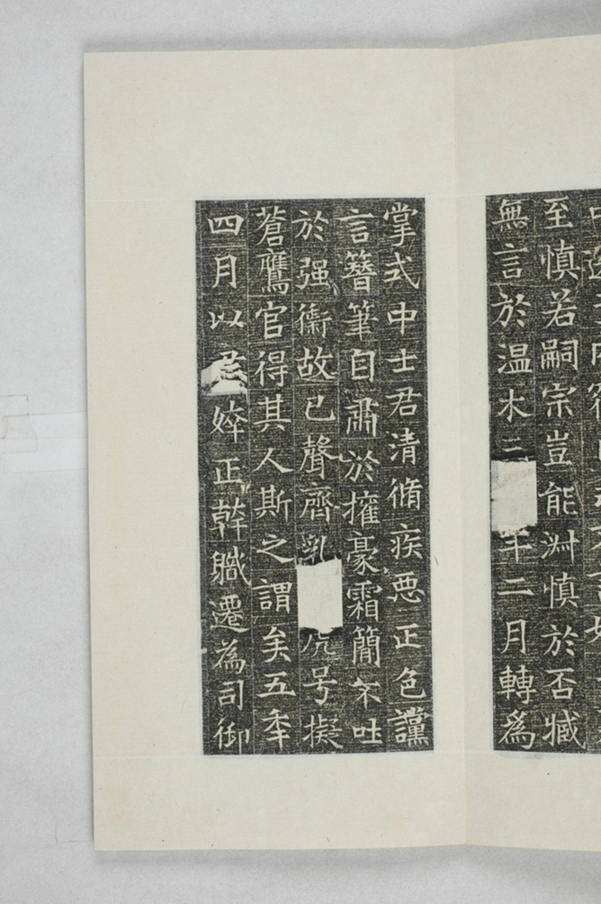 至慎若嗣宗豈能淋慎於否臧
無言於温木二年二月轉為
掌式中士君清脩疾惡正色讜
言簪筆自肅於擁豪霜簡不吐
於强衛故已聲齊乳号擬
蒼鷹官得其人斯之謂矣五年
四月以君婞正幹職遷為司御